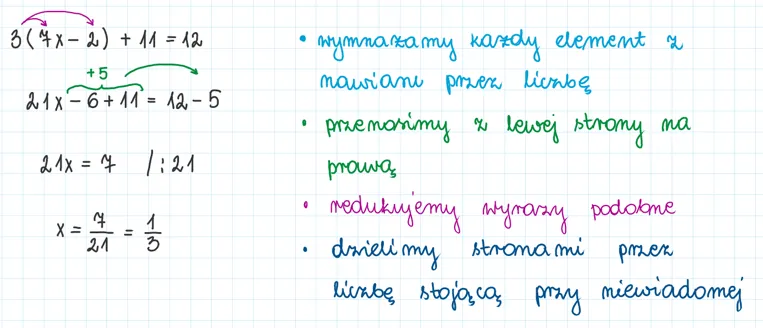 3(7x-2) + 11 = 12
+5
21x - 6 + 11 = 12 - 5
21x = 7 /:21
x = 7/21 = 1/3
• wymnażamy każdy element z
nawiani przez liczbę
• przenosimy z lewej strony na
prawą
• redukujemy wyrazy podobne
• dzielimy stronami przez
liczbę stojącą przy niewiadomej